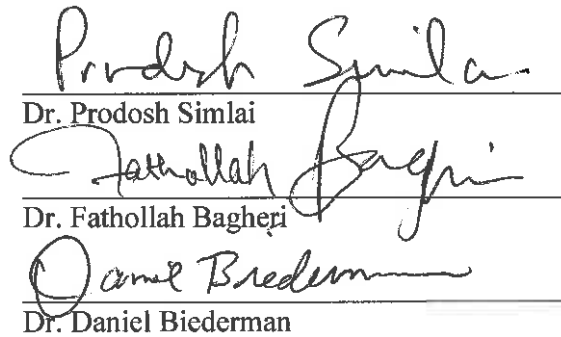 Prodosh Simlai
Dr. Prodosh Simlai
Fathollah Bagheri
Dr. Fathollah Bagheri
Daniel Biederman
Dr. Daniel Biederman